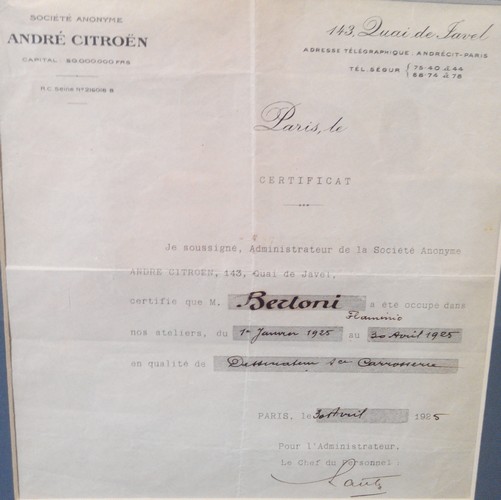 SOCIÉTÉ ANONYME
ANDRÉ CITROËN
CAPITAL : 50.000.000 FRS
R.C. Seine Nº 218018 B
143, Quai de Javel
ADRESSE TÉLÉGRAPHIQUE : ANDRÉCIT-PARIS
TÉL. SÉGUR { 75-40 à 44
68-74 à 78
Paris, le
CERTIFICAT
Je soussigné, Administrateur de la Société Anonyme
ANDRE CITROEN, 143, Quai de Javel,
certifie que M. Bertoni a été occupé dans
Flaminio
nos ateliers, du 1er Janvier 1925 au 30 Avril 1925
en qualité de Dessinateur Sce Carrosserie
PARIS, le 30 Avril 1925
Pour l'Administrateur.
Le Chef du Personnel